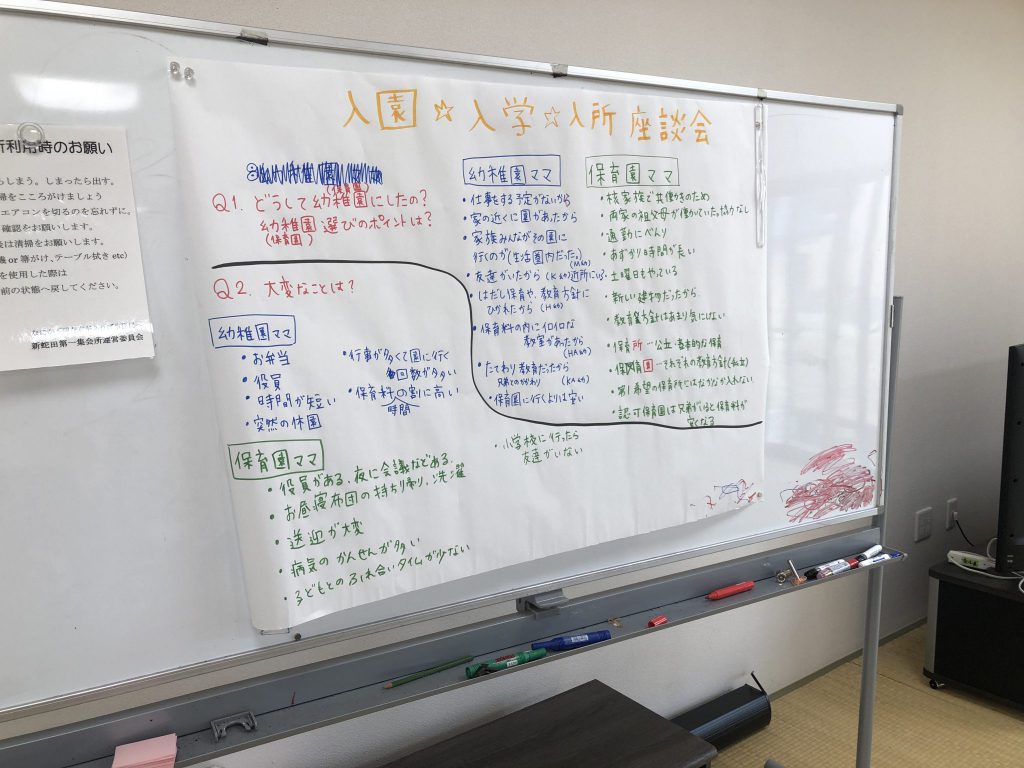 入園☆入学☆入所 座談会
Q1. どうして幼稚園にしたの?
(保育園)
幼稚園 選びのポイントは?
(保育園)
幼稚園ママ
・仕事をする予定がないから
・家の近くに園があったから
・家族みんながその園に
行くのが(生活圏内だった。)
・友達がいたから
・はだし保育や、教育方針に
ひかれたから
・保育料の内にイロイロな
教室があったから
・たてわり教育だったから
・保育園に行くよりは安い
保育園ママ
・核家族で共働きのため
・両家の祖父母が働いていた。協力なし
・通勤にべんり
・あずかり時間が長い
・土曜日もやっている
・新しい建物だったから
・教育方針はあまり気にしない
・保育所…公立 基本的な保育
・保育園…それぞれの教育方針(私立)
・第1希望の保育所にはなかなか入れない
・認可保育園は兄弟がいると保育料が
安くなる
Q2. 大変なことは?
幼稚園ママ
・お弁当
・役員
・時間が短い
・突然の休園
・行事が多くて園に行く
回数が多い
・保育料の割に高い
時間
保育園ママ
・役員がある。夜に会議などある。
・お昼寝布団の持ち帰り、洗濯
・送迎が大変
・病気のかんせんが多い
・子どもとのふれ合いタイムが少ない
・小学校に行ったら
友達がいない
所利用時のお願い
らしまう。しまったら出す。
掃をこころがけましょう
エアコンを切るのを忘れずに。
確認をお願いします。
後は清掃をお願いします。
機or箒がけ、テーブル拭き etc)
を使用した際は
前の状態へ戻してください。
新蛇田第一集会所運営委員会